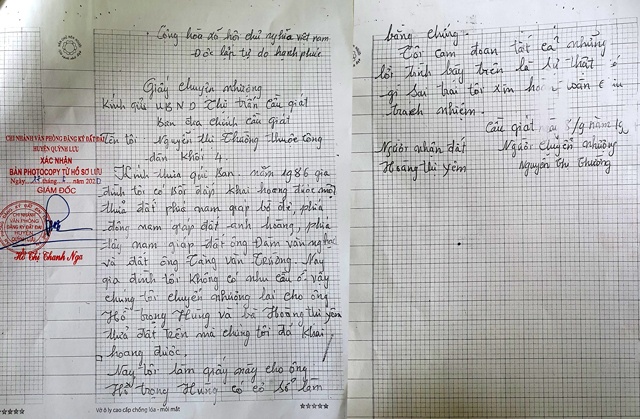 Cộng hòa xã hội chủ nghĩa việt nam
Độc lập tự do hạnh phúc
Giấy chuyển nhượng
Kính gửi UBND Thị trấn Cầu giát
Ban địa chính cầu giát
Tên tôi Nguyễn thị Thưởng thuộc công
dân khối 4.
Kính thưa quí Ban. năm 1986 gia
đình tôi có bồi đắp khai hoang được một
thửa đất phía nam giáp bờ đê, phía
đông nam giáp đất anh hoàng, phía
tây nam giáp đất ông Đàm văn nghệ
và đất ông Tăng văn Trường. Nay
gia đình tôi không có nhu cầu ở. vậy
chúng tôi chuyển nhượng lại cho ông
Hồ trọng Hùng và bà Hoàng thị yêm
thửa đất trên mà chúng tôi đã khai
hoang được.
Nay tôi làm giấy này cho ông
Hồ trọng Hùng có cơ sở làm
Vở ô ly cao cấp chống lóa - mỏi mắt
CHI NHÁNH VĂN PHÒNG ĐĂNG KÝ ĐẤT ĐAI
HUYỆN QUỲNH LƯU
XÁC NHẬN
BẢN PHOTOCOPY TỪ HỒ SƠ LƯU
GIÁM ĐỐC
CHI NHÁNH
VĂN PHÒNG
ĐĂNG KÝ ĐẤT ĐAI
Hồ Thị Thanh Nga
bằng chứng.
Tôi cam đoan tất cả những
lời trình bày trên là sự thật
gì sai trái tôi xin
trách nhiệm.
Cầu giát
Người nhận đất
Người chuyển nhượng
Hoàng thị yêm
Nguyễn Thị Thưởng